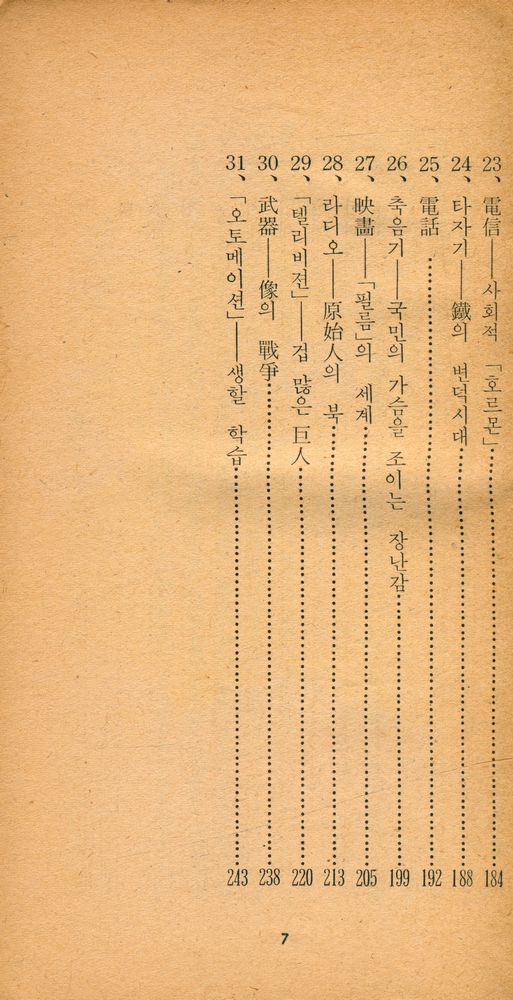 23、電信──사회적 「호르몬」……184
24、타자기──鐵의 변덕시대……188
25、電話……192
26、축음기──국민의 가슴을 조이는 장난감……199
27、映畫──「필름」의 세계……205
28、라디오──原始人의 북……213
29、「텔리비젼」──겁 많은 巨人……220
30、武器──像의 戰爭……238
31、「오토메이션」──생할 학습……243
7